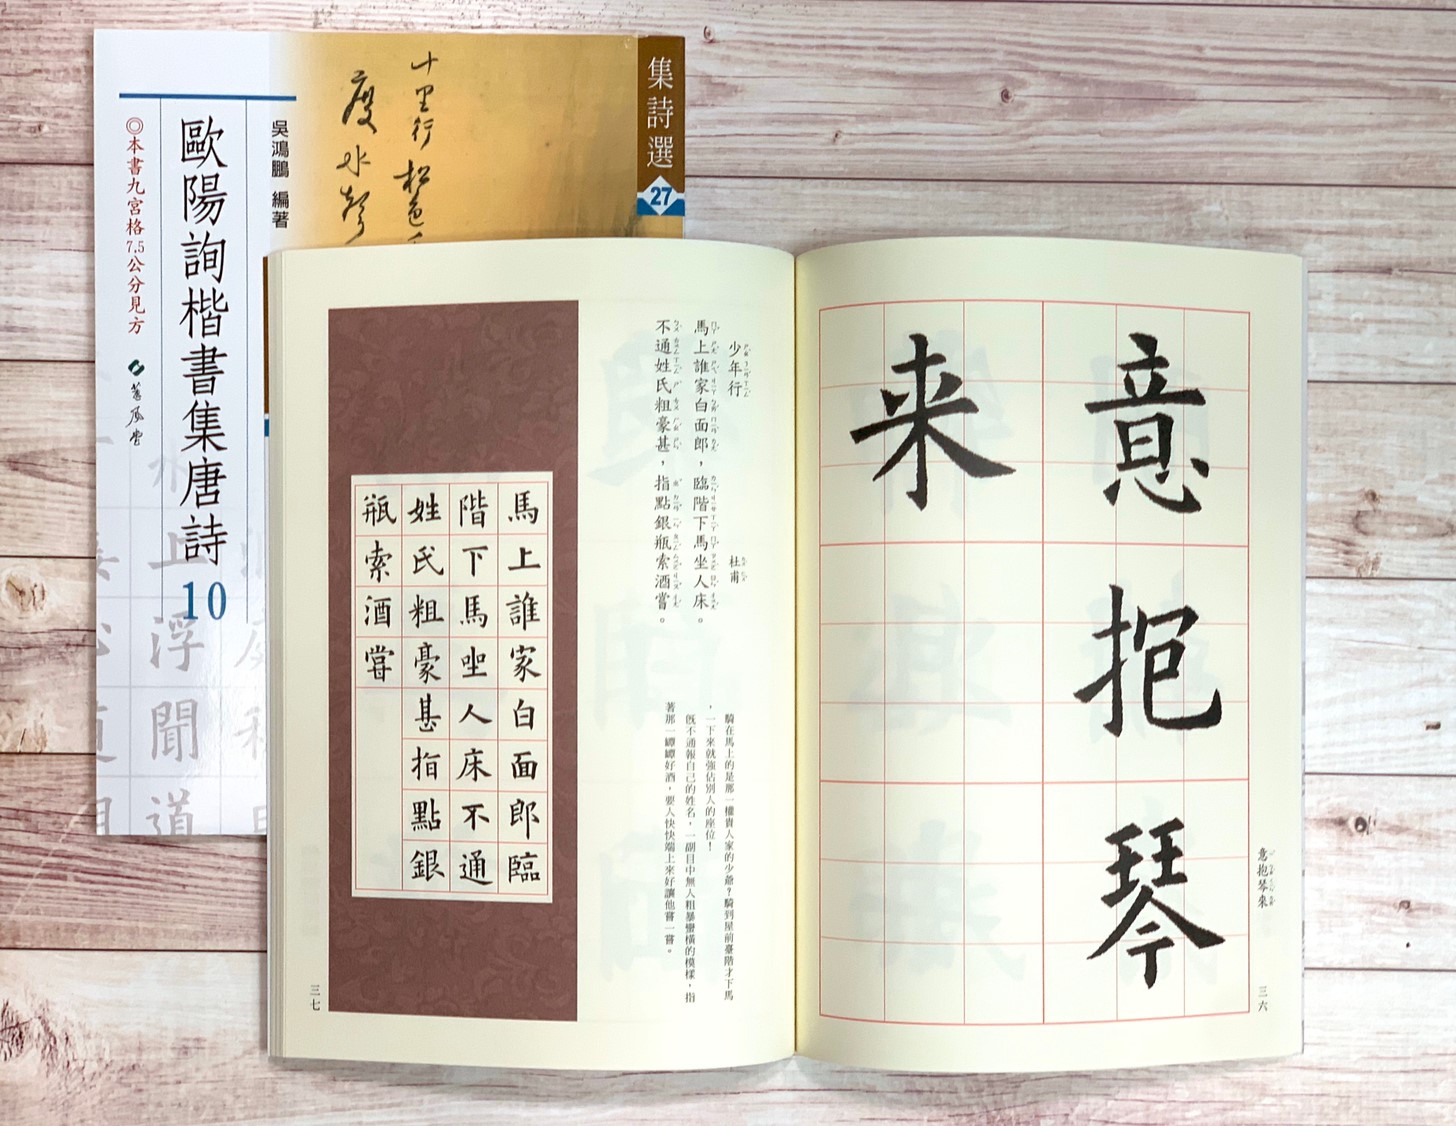 集詩選
27
十里行松色
度水聲
吳鴻鵬 編著
歐陽詢楷書集唐詩10
◎本書九宮格7.5公分見方
蕙風堂
浮
聞
道
上
意抱琴
来
意抱琴來
三六
少年行
杜甫
馬上誰家白面郎，臨階下馬坐人床。
不通姓氏粗豪甚，指點銀瓶索酒嘗。
騎在馬上的是那一權貴人家的少爺？騎到屋前臺階才下馬
，一下來就強佔別人的座位！
既不通報自己的姓名，一副目中無人粗暴蠻橫的模樣，指
著那一罈罈好酒，要人快快端上來好讓他嘗一嘗。
馬上誰家白面郎臨
階下馬坐人床不通
姓氏粗豪甚指點銀
瓶索酒嘗
三七